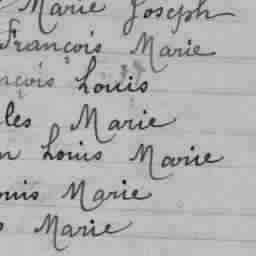 Marie Joseph
François Marie
nçois Louis
les Marie
n Louis Marie
ouis Marie
Marie